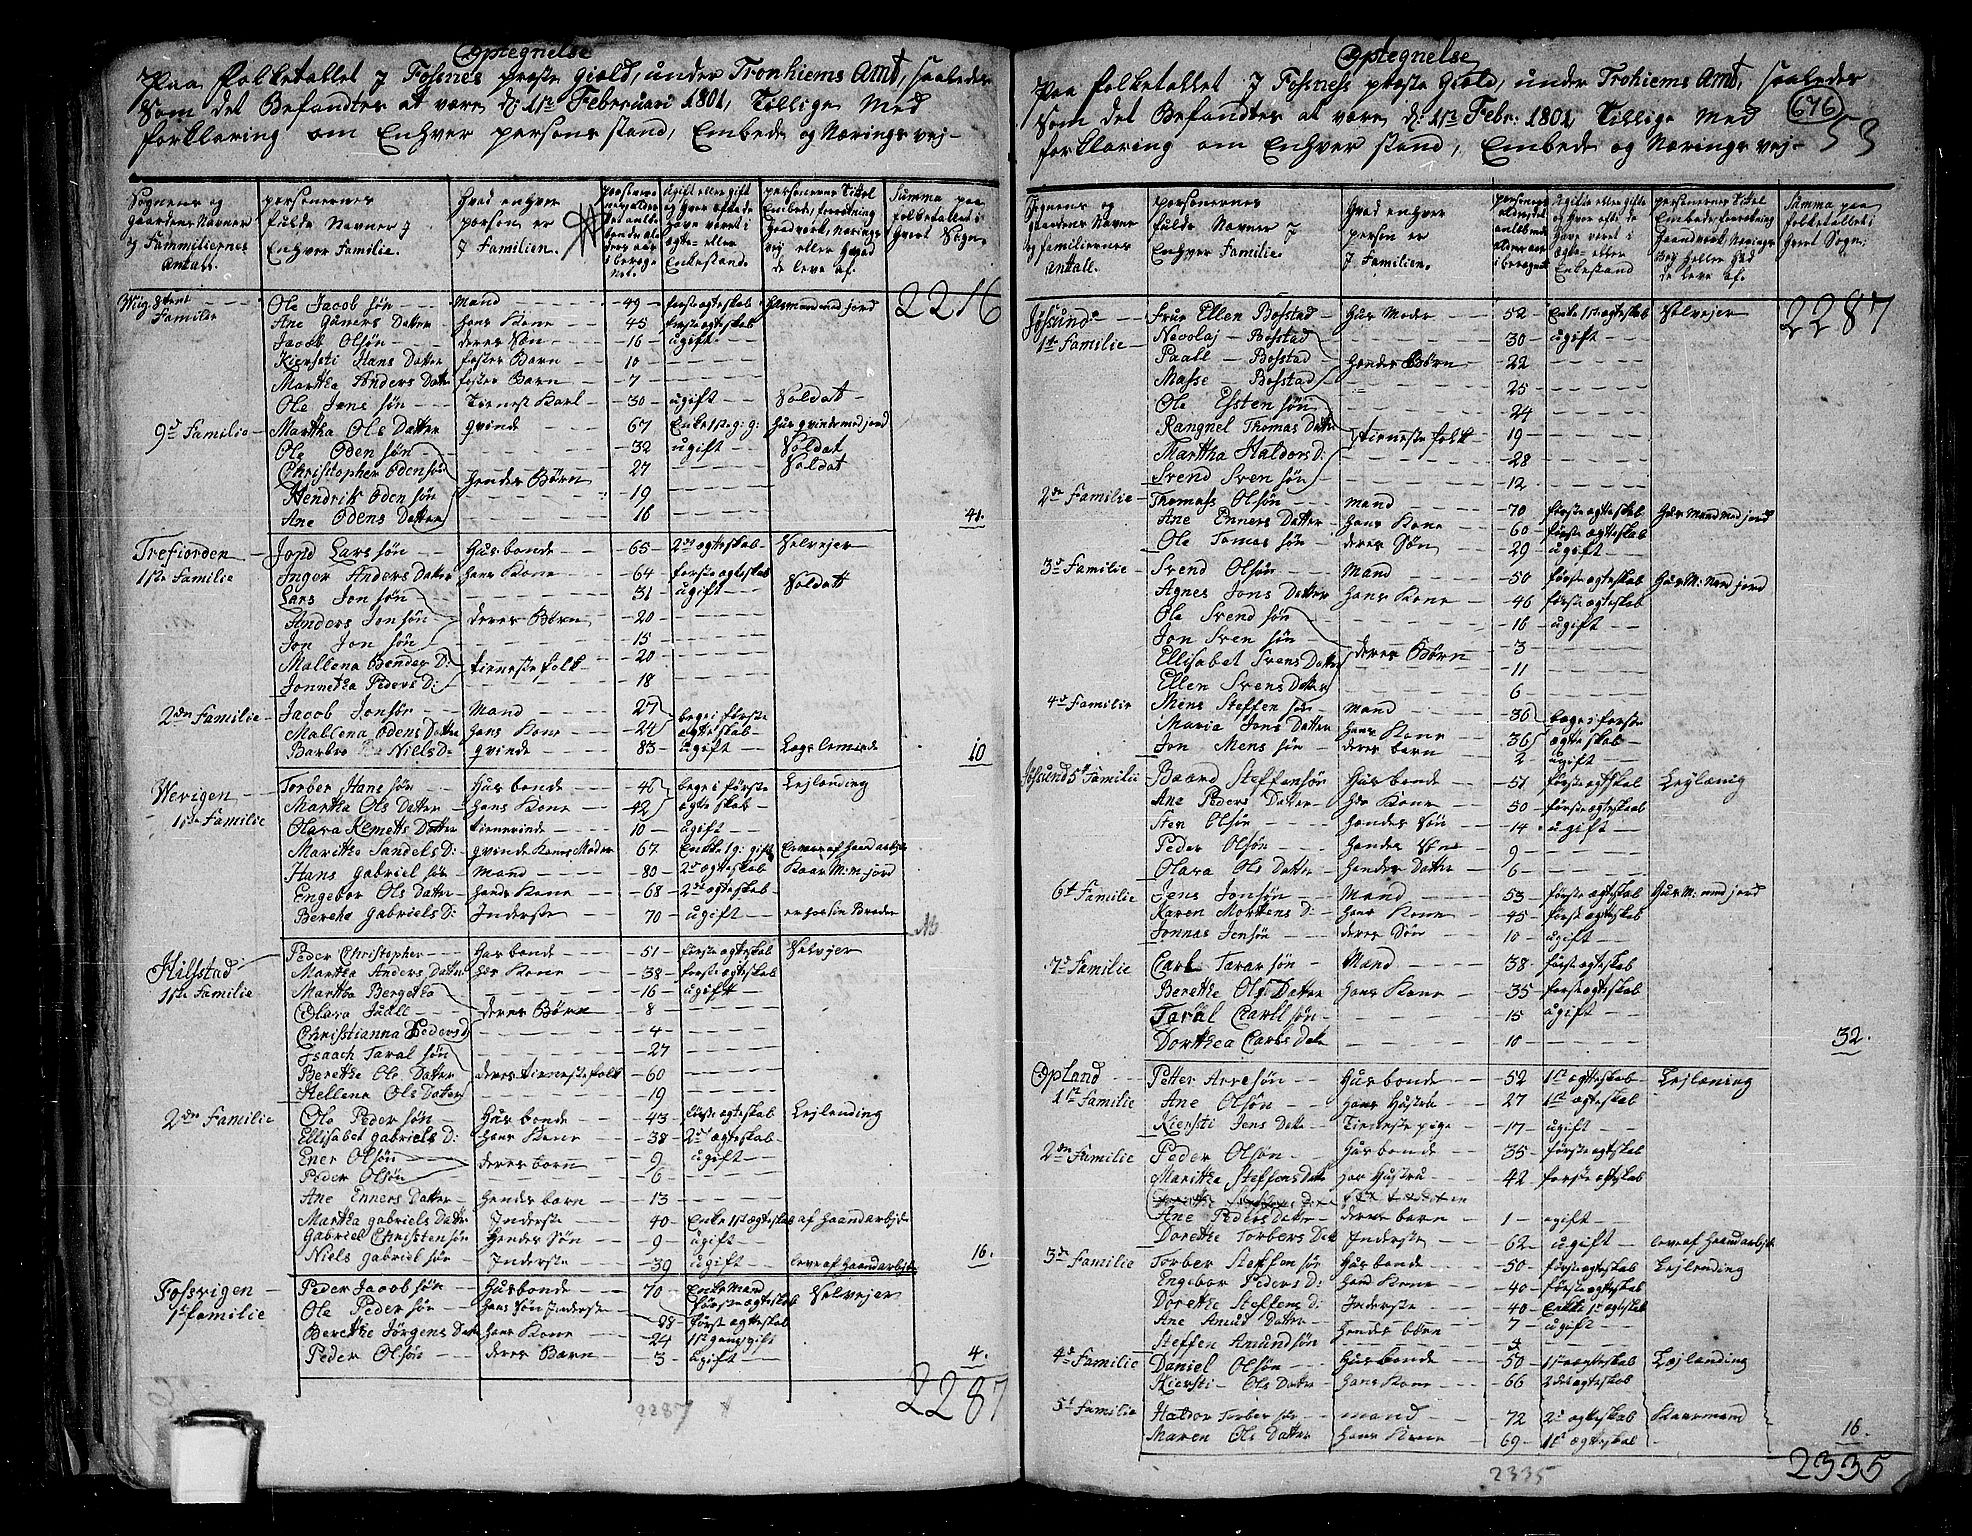 Optegnelse
Paa folketallet J Fosnes præste Giæld, under Tronhiems Amt, saaledes
Som det Befandtes at være d: 1ste Februari 1801, Tillige Med
forklaring om Enhver persons stand, Embede og Nærings vej-
Sognens og gaardens Navner og Fammiliernes Antall.
personernes fulde Navner J Enhver Familie.
Hvad enhver person er J Familien.
personernes Titel Embede, forretning Haandverk, Nærings vej eller hvad de leve af.
Summa paa folketallet i hvert Sogn
Ole Jacob søn - Mand - 49 - første ægteskab Huusmand med jord 2216
Familie Ane Guners Datter - hans Kone - 45 første ægteskab
Jacob Olsøn - deres Søn - 16 - ugift
Kiersti Hans Datter foster Barn - 10
Martha Anders Datter foster Barn - 7
Ole Jens søn - Tieneste Karl - 30 - ugift - Soldat
9de Familie - Martha Ols Datter qvinde - 67 Enke 1ste g: g: Huus qvinde med jord
Ole Oden søn - 32 - ugift Soldat
Christopher Oden søn hendes Børn - 27 - Soldat
Hendrik Oden søn - 19
Ane Odens Datter - 16 41.
Trefiorden - Jond Lars søn - Husbonde - 65 - 2det ægteskab - Selvejer
1ste Familie Inger Anders Datter hans Kone - 64 første ægteskab
Lars Jon søn - 31 ugift Soldatt
Anders Jonsøn deres Børn - 20
Jon Jon søn - 15
Mallena Bendex D: tieneste folk - 20
Jonnetha Peders D: - 18
2den Familie - Jacob Jonsøn - Mand - 27 begge i første
Mallena Odens Datter hans Kone - 24 ægteskab
Barbro Niels D: qvinde - 83 - ugift Lægslemmede 10
Werigen - Torber Hans søn - Husbonde - 46 begge i første Lejlending
1ste Familie Martha Ols Datter - Hans Kone - 42 ægteskab
Olava Kemetts Datter tieneqvinde - 10 - ugift
Maritha Sandels D: qvinde Kones Moder 67 - Enke 1 g: gift Ernærer af Haandarbejde
Hans Gabriel søn - Mand - 80 - 2det ægteskab Huus M: m: jord
Engebor Ols Datter hans Kone - 68 - 2det ægteskab
Beretha Gabriels D: Inderste - 70 - ugift - er hos sin Broder
Hilstad Peder Christopher - Husbonde - 51 - første ægteskab Selvejer
1ste Familie Martha Anders Datter Hs Kone - 38 - første ægteskab
Martha Bergetha - 16 - ugift
Olava Juall - deres Børn - 8
Christianna Peders D - 4
Isaach Taral søn - 27
Berethe Ols Datter deres tieneste folk - 60
Hellena Ols Datter - 19
2den Familie Ole Peder søn - Husbonde - 43 første ægteskab Lejlending
Ellisabet Gabriels D: hans Kone - 38 2det ægteskab
Ener Olsøn - deres børn - 9 - ugift
Peder Olsøn - 6
Ane Enners Datter - hendes barn - 13
Martha Gabriels Datter Inderste - 40 - Enke 1ste ægteskab af Haandarbejde
Gabriel Christensøn hendes Søn - 9 - ugift
Niels Gabriel søn - Inderste - 39 ugift leve af Haandarbejde 16.
Fosvigen - Peder Jacob søn - Husbonde - 70 - Enkemand Selvejer
1ste Familie Ole Peder søn hans søn Inderste - 28 - første ægteskab
Berethe Jørgens Datter hans Kone - 24 1ste gang gift
Peder Olsøn - deres Barn - 3 - ugift 4.
2287
2287
Optegnelse
Paa folketallet J Fosness præste Giæld, under Trohiems Amt, saaledes
Som det Befandtes at være d: 1ste Febr: 1801, Tillige Med 676
forklaring om Enhver stand, Embede og Nærings vej- 53
Sognens og gaardens Navner og familiernes antall.
personernes fulde Navner J Enhver Familie.
Hvad enhver person er J Familien.
Summa paa folketallet i hvert Sogn:
Jøssund - Frue Ellen Bosstad - Huus Moder - 52 - Enke 1ste ægteskab Selvejer 2287
1ste Familie - Nicolaj - Bosstad 30 ugift
Paall - Bosstad hendes Børn - 22
Masse Bosstad - 25
Ole Esten søn - 24
Rangnel Thomas Datter tieneste folk - 19
Martha Haldors D: - 28
Svend Sven søn - 12
2den Familie - Thomass Olsøn - Mand - 70 første ægteskab Huus Mand med jord
Ane Enners Datter hans Kone - 60 første ægteskab
Ole Tomas søn - deres Søn - 29 ugift
3de Familie - Svend Olsøn - Mand - 50 første ægteskab Huus M: med jord
Agnes Jons Datter hans Kone - 46 første ægteskab
Ole Svend søn - 16 - ugift
Jon Sven søn deres Børn - 3
Ellisabet Svens Datter - 11
Ellen Svens Datter - 6
4de Familie Mens Steffen søn - Mand - 36 begge i første
Maria Jons Datter hans Kone 36 ægteskab
Jon Mens søn deres barn - 2 ugift
Jøssund 5te Familie Baard Steffensøn Husbonde - 51 første ægteskab Lejlænig
Ane Peders Datter Hs Kone - 50 første ægteskab
Sten Olsøn - hendes Søn - 14 - ugift
Peder Olsøn - hendes Søn - 9
Olava Ols Datter hendes Datter - 6
6te Familie Jens Jonsøn - Mand - 53 første ægteskab Huus M: med jord
Karen Mortens D: hans Kone - 45 første ægteskab
Jonnas Jensøn - deres Søn - 10 - ugift
7de Familie Carl Tarar søn - Mand - 38 første ægteskab
Berethe Ols Datter hans Kone - 35 første ægteskab
Taral Carll søn - 15 ugift
Dorthea Carls Datter 10 32.
Opland - Petter Arnesøn - Husbonde - 52 1ste ægteskab - Lejlæning
1ste Familie Ane Olsøn - Hans Hustru - 27 1ste ægteskab
Kiersti Jens Datter - Tieneste pige - 17 - ugift
2den Familie - Peder Olsøn - Husbonde - 35 - første ægteskab
Maritha Steffens Datter hs Hustru - 42 - første ægteskab
Ane Peders Datter - deres barn - 1 - ugift
Dorethe Torbers Datter Inderste - 62 - ugift - leve af Haandarbejde
3de Familie - Torber Steffen søn Husbonde - 50 - første ægteskab Lejlending
Engebor Peders D: hans Kone - 40 - første ægteskab
Dorethe Steffens D: Inderste - 40 - Enke 1ste ægteskab
Ane Amund Datter - hendes børn - 7 - ugift
Steffen Amundsøn - 3
4de Familie Daniel Olsøn - Husbonde - 50 - 1ste ægteskab Lejlending
Kiersti - Ols Datter hans Kone - 66 2det ægteskab
5te Familie Haldor Torber søn - mand - 72 2det ægteskab
Maren Ols Datter hans Kone - 69 - 1ste ægteskab 16.
2335
2335